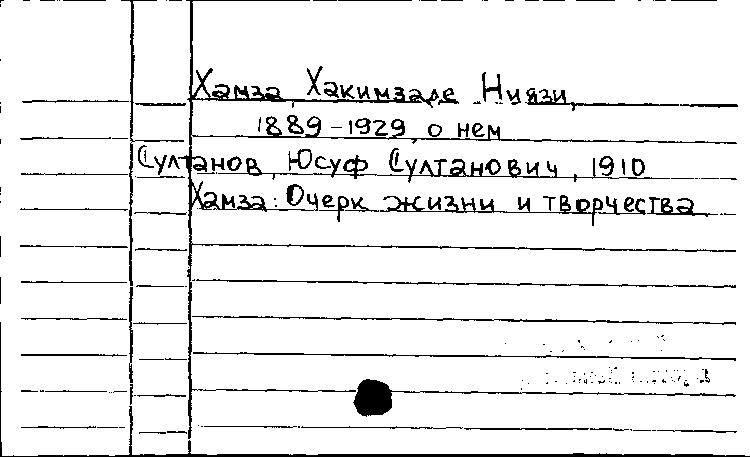 Хамза, Хакимзаде Ниязи,
1889-1929, о нем
Султанов, Юсуф Султанович, 1910
Хамза: Очерк жизни и творчества